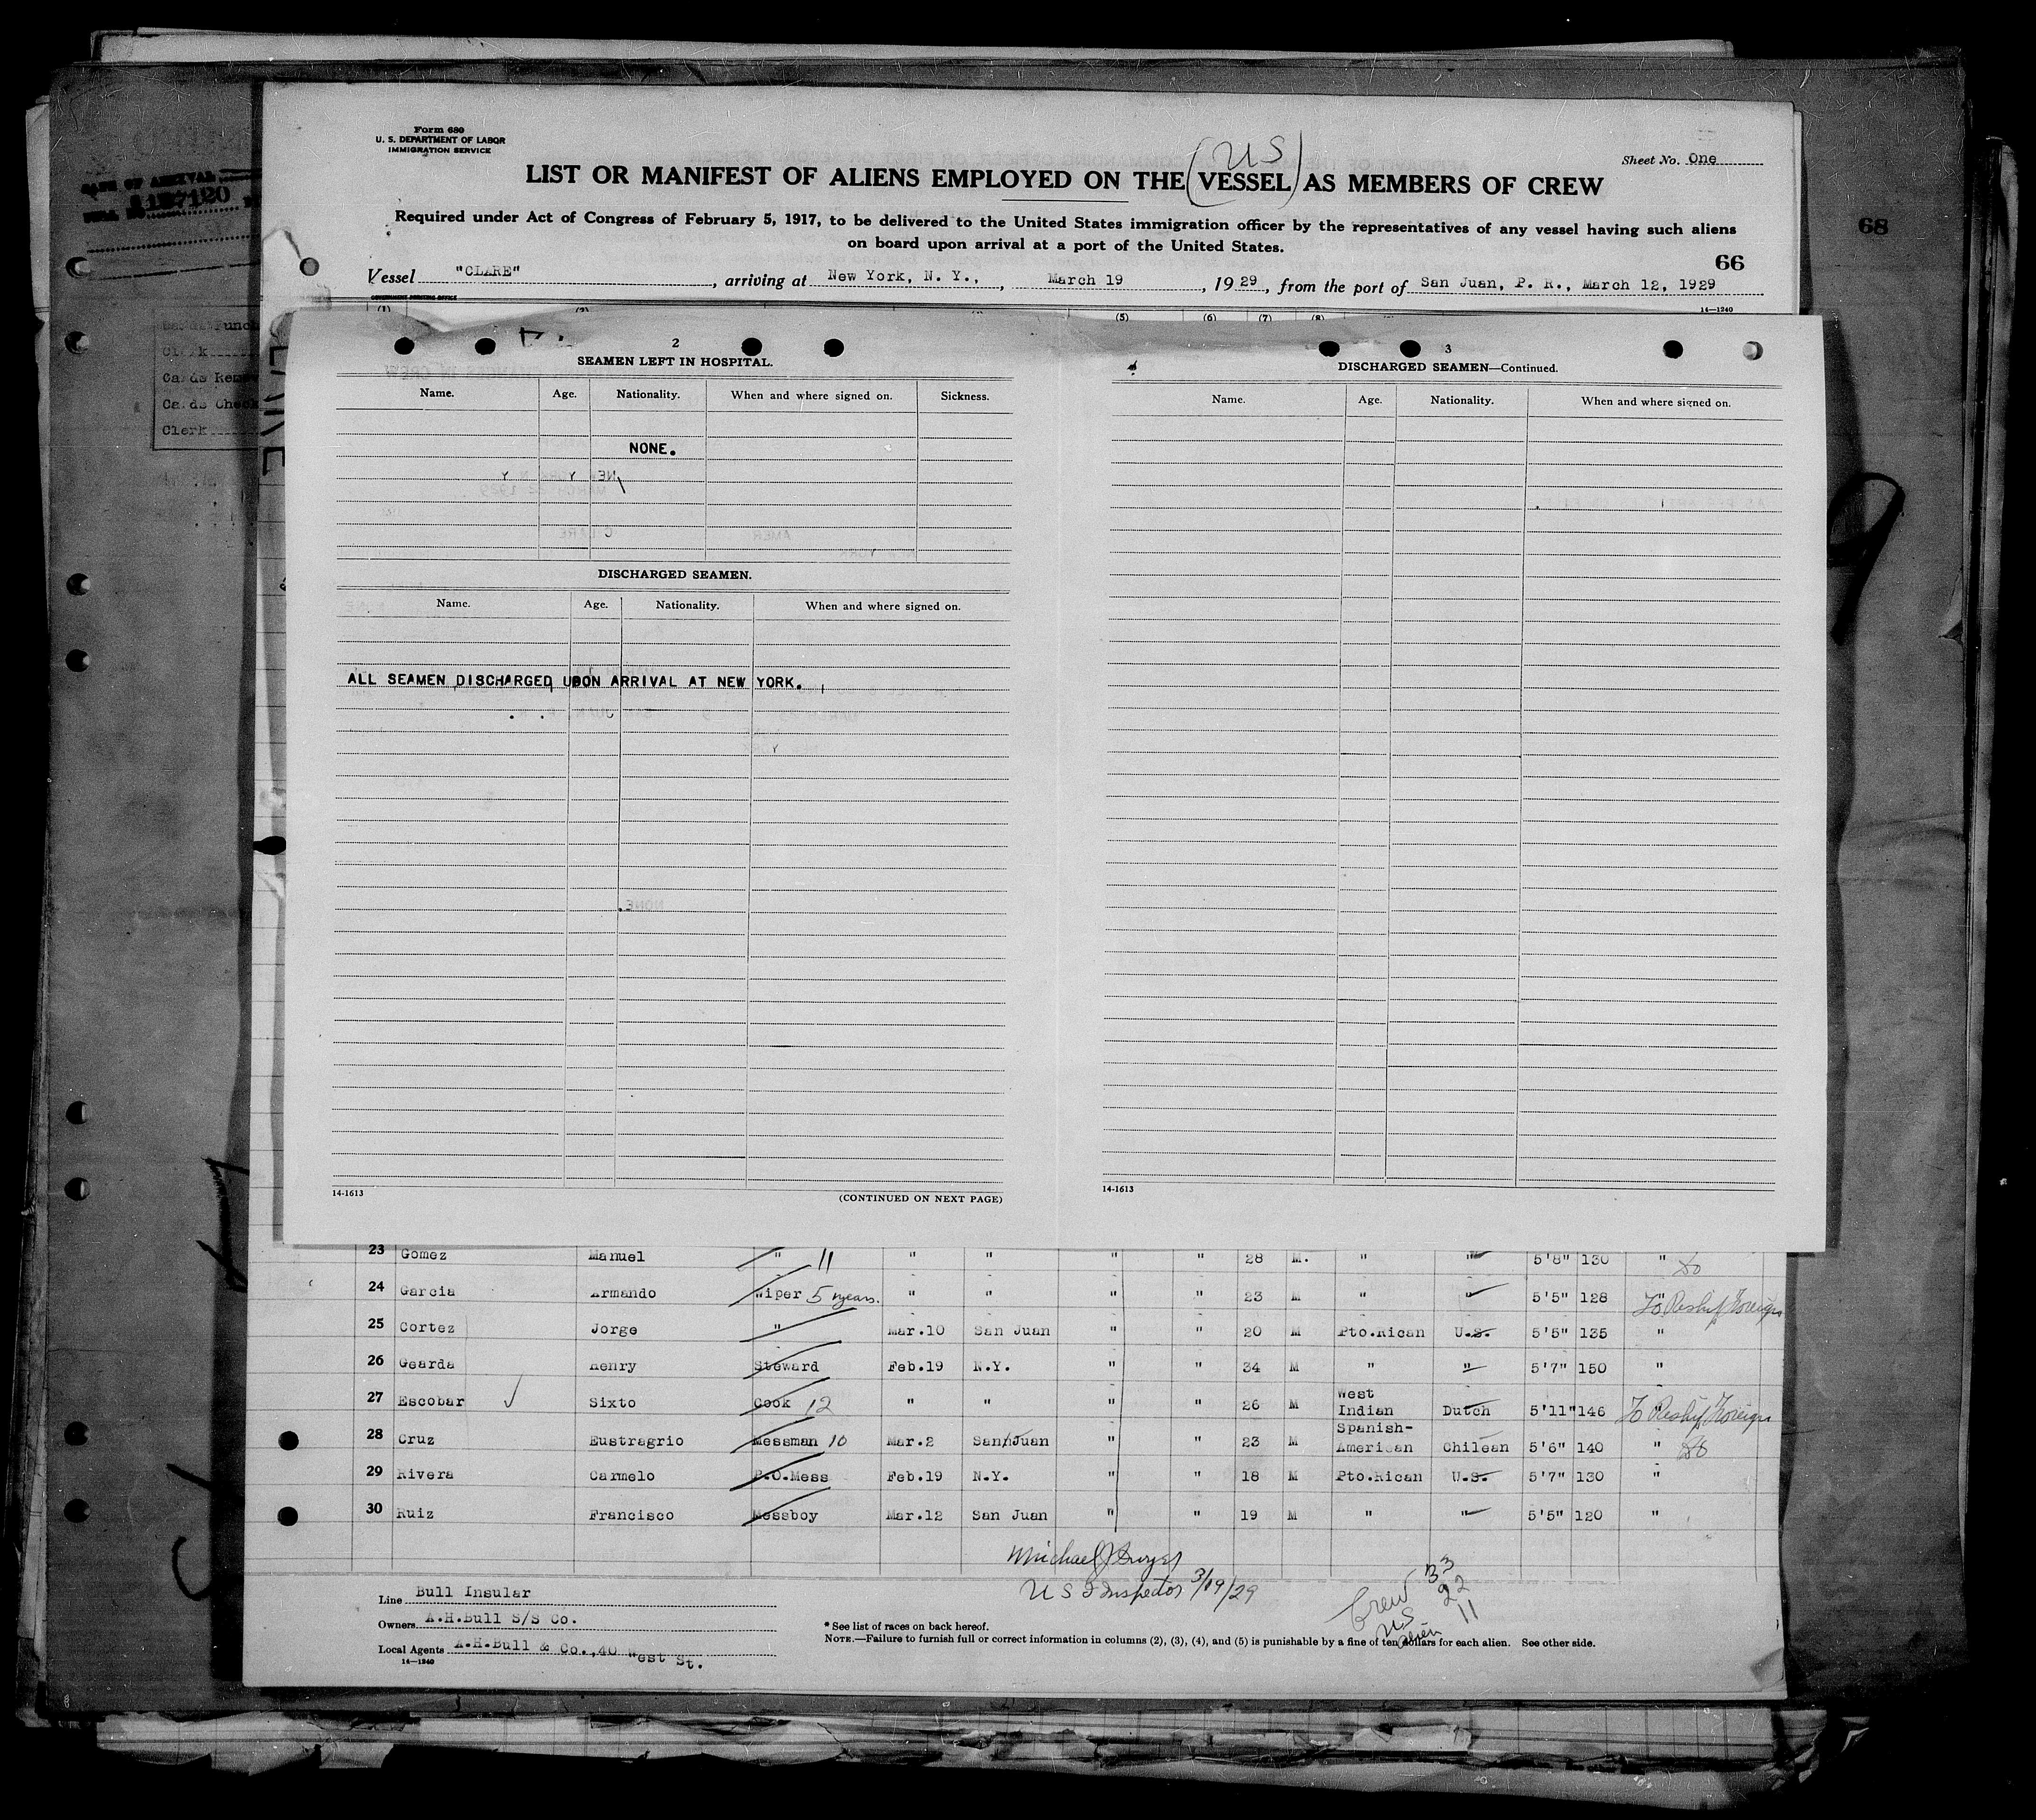 Form 680
U. S. DEPARTMENT OF LABOR
IMMIGRATION SERVICE
Sheet No. One
(US)
LIST OR MANIFEST OF ALIENS EMPLOYED ON THE (VESSEL) AS MEMBERS OF CREW
Required under Act of Congress of February 5, 1917, to be delivered to the United States immigration officer by the representatives of any vessel having such aliens
on board upon arrival at a port of the United States.
66
68
Vessel "CLARE", arriving at New York, N. Y., March 19, 1929, from the port of San Juan, P. R., March 12, 1929
GOVERNMENT PRINTING OFFICE
14—1240
(1) (2) (5) (6) (7) (8)
2
SEAMEN LEFT IN HOSPITAL.
Name. Age. Nationality. When and where signed on. Sickness.
NONE.
DISCHARGED SEAMEN.
Name. Age. Nationality. When and where signed on.
ALL SEAMEN DISCHARGED UPON ARRIVAL AT NEW YORK.
14-1613
(CONTINUED ON NEXT PAGE)
3
DISCHARGED SEAMEN—Continued.
Name. Age. Nationality. When and where signed on.
14-1613
23 Gomez Manuel " 11 " " " " 28 M. " " 5'8" 130 " do
24 Garcia Armando Wiper 5 years. " " " " 23 M " " 5'5" 128 " To Reship Foreign
25 Cortez Jorge " Mar.10 San Juan " " 20 M Pto.Rican U.S. 5'5" 135 "
26 Gearda Henry Steward Feb.19 N.Y. " " 34 M " " 5'7" 150 "
27 Escobar Sixto Cook 12 " " " " 26 M West Indian Dutch 5'11" 146 " To Reship Foreign
28 Cruz Eustragrio Messman 10 Mar.2 San Juan " " 23 M Spanish-American Chilean 5'6" 140 " do
29 Rivera Carmelo P.O.Mess Feb.19 N.Y. " " 18 M Pto.Rican U.S. 5'7" 130 "
30 Ruiz Francisco Messboy Mar.12 San Juan " " 19 M " " 5'5" 120 "
Michael J
U S I Inspector 3/19/29
Crew 33
US 22
alien 11
Line Bull Insular
Owners A.H.Bull S/S Co.
Local Agents A.H.Bull & Co., 40 West St.
14—1240
* See list of races on back hereof.
NOTE.—Failure to furnish full or correct information in columns (2), (3), (4), and (5) is punishable by a fine of ten dollars for each alien. See other side.